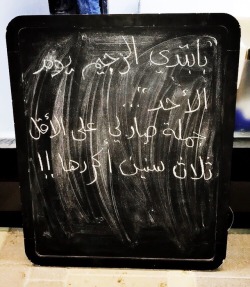 بابتدي الرجيم يوم
الأحد"..
جملة صارلي على الأقل
ثلاث سنين أكررها !!